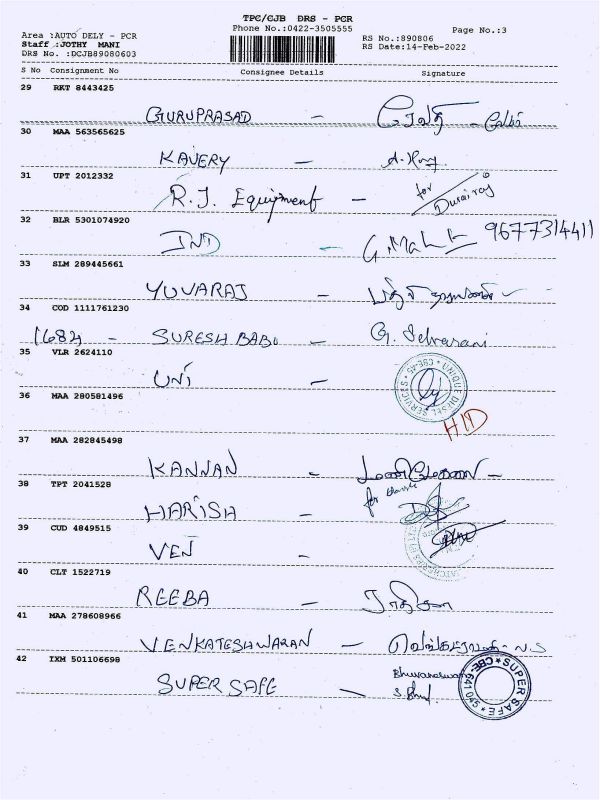 TPC/CJB DRS - PCR
Phone No.:0422-3505555
Page No.:3
Area :AUTO DELY - PCR
Staff :JOTHY MANI
DRS No. :DCJB89080603
RS No.:890806
RS Date:14-Feb-2022
S No Consignment No Consignee Details Signature
29 RKT 8443425
GURUPRASAD -
30 MAA 563565625
KAVERY -
31 UPT 2012332
R.J. Equipment - for Durairaj
32 BLR 5301074920
IND - 9677314411
33 SLM 289445661
YUVARAJ -
34 COD 1111761230
1682 - SURESH BABU - G. Selvarani
35 VLR 2624110
UNI -
UNIQUE DIESEL SERVICES * CBE-45 *
36 MAA 280581496
HID
37 MAA 282845498
KANNAN -
38 TPT 2041528
HARISH - for
39 CUD 4849515
VEN -
40 CLT 1522719
REEBA - ராதிகா
41 MAA 278608966
VENKATESHWARAN -
42 IXM 501106698
SUPER SAFE -
* SUPER SAFE * CBE-641 045